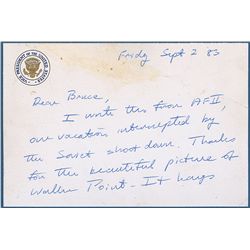 Friday Sept 2 83
Dear Bruce,
I write this from AF II,
our vacation interrupted by
the Soviet shoot down. Thanks
for the beautiful picture of
Walker Point - It hangs